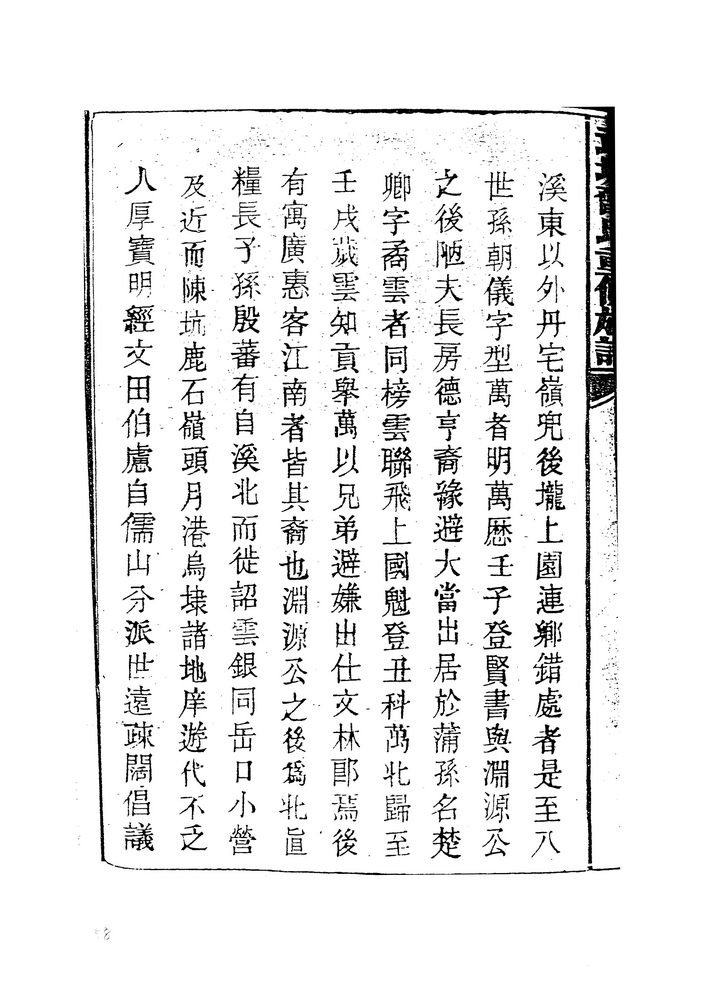 溪東以外丹宅嶺兜後壠上園連鄉錯處者是至八
世孫朝儀字型萬者明萬歷壬子登賢書與淵源公
之後陋夫長房德亨裔緣避大當出居於蒲孫名楚
卿字矞雲者同榜雲聯飛上國魁登丑科萬北歸至
壬戌歲雲知貢舉萬以兄弟避嫌出仕文林郎焉後
有寓廣惠客江南者皆其裔也淵源公之後為北直
糧長子孫殷蕃有自溪北而徙詔雲銀同岳口小營
及近而陳坑鹿石嶺頭月港烏埭諸地庠遊代不乏
人厚寶明經文田伯慮自儒山分派世遠疎闊倡議
重修族譜
8